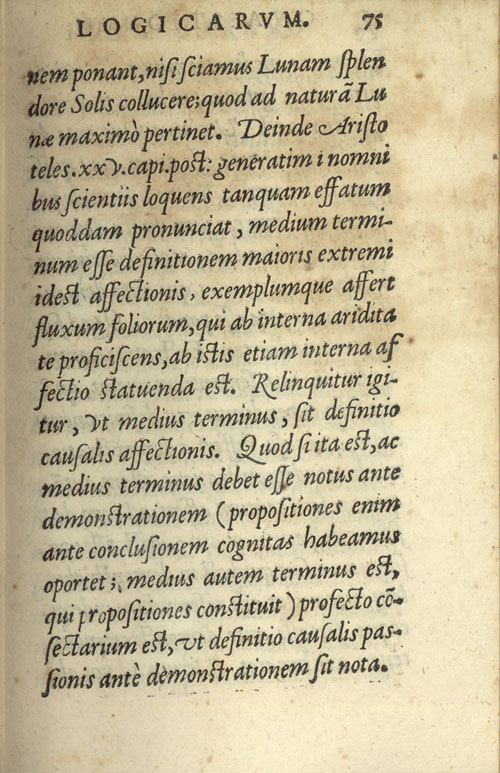 LOGICARVM. 75
nem ponant, nisi sciamus Lunam splen
dore Solis collucere; quod ad naturã Lu
næ maximò pertinet. Deinde Aristo
teles.xxv.capi.post: generatim i nomni
bus scientiis loquens tanquam effatum
quoddam pronunciat, medium termi-
num esse definitionem maioris extremi
idest affectionis, exemplumque affert
fluxum foliorum, qui ab interna aridita
te proficiscens, ab istis etiam interna af
fectio statuenda est. Relinquitur igi-
tur, vt medius terminus, sit definitio
causalis affectionis. Quod si ita est, ac
medius terminus debet esse notus ante
demonstrationem (propositiones enim
ante conclusionem cognitas habeamus
oportet; medius autem terminus est,
qui propositiones constituit) profecto cõ-
sectarium est, vt definitio causalis pas-
sionis antè demonstrationem sit nota.